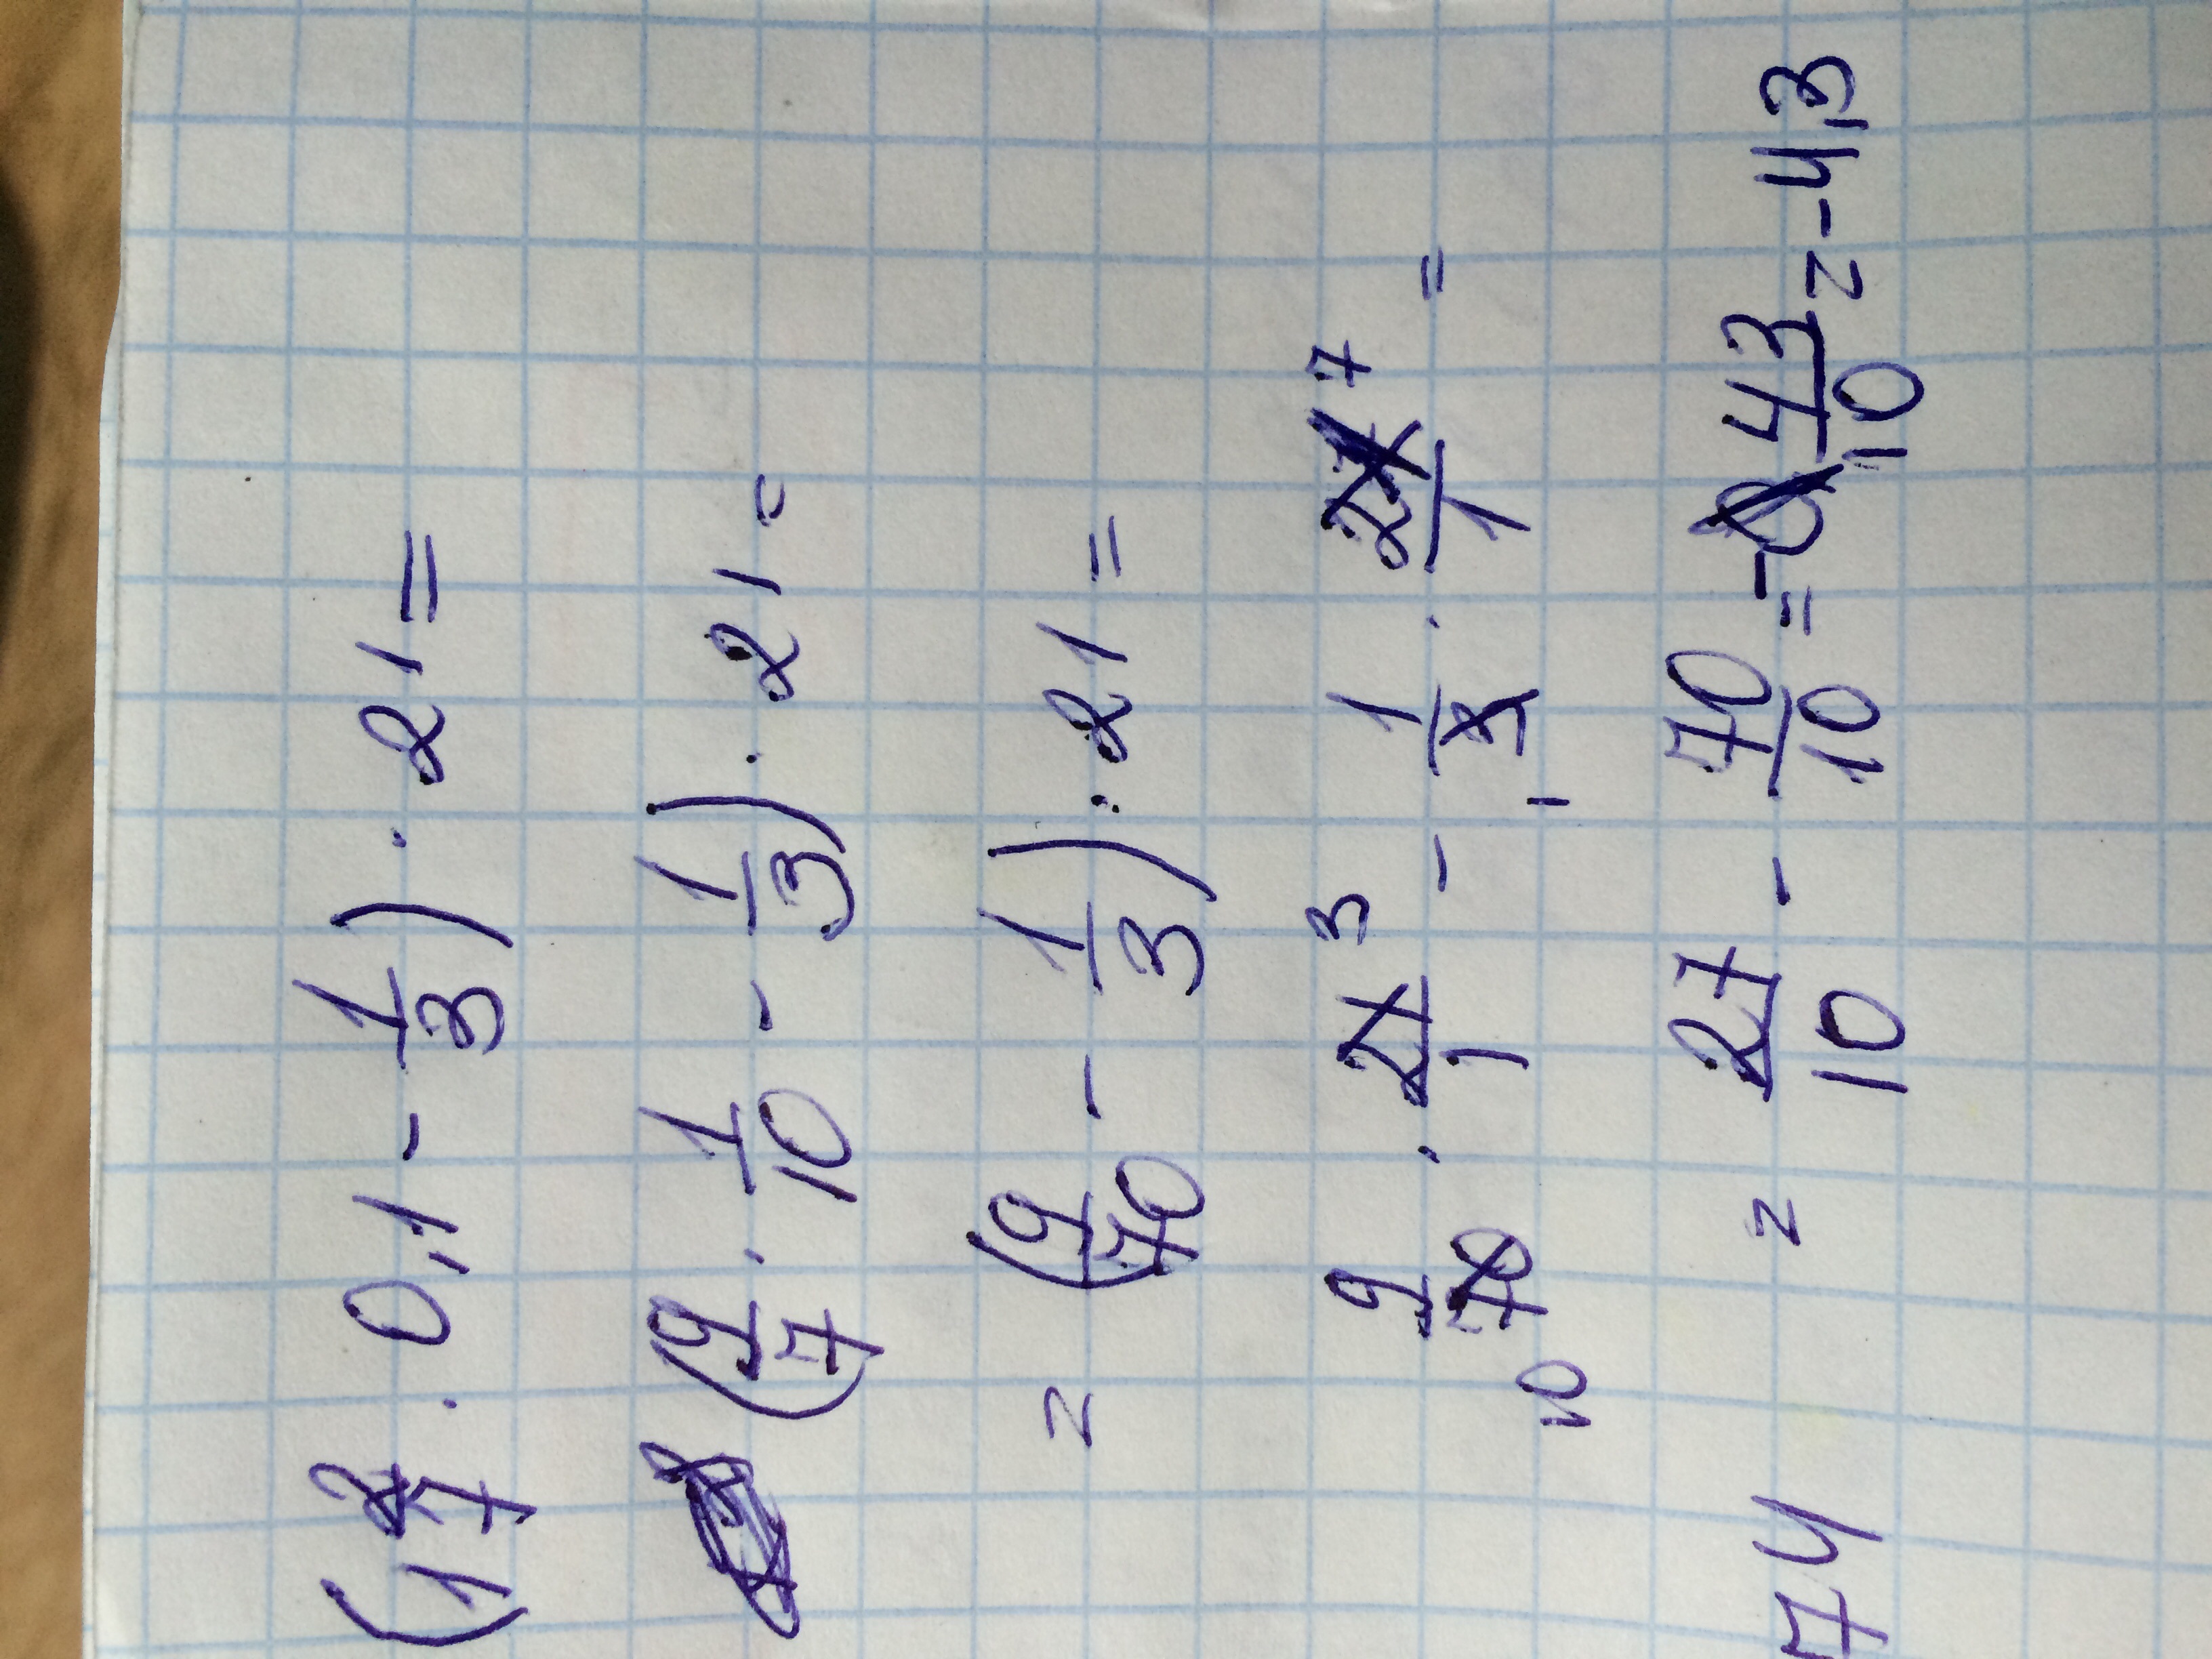 (1 2/7 · 0,1 - 1/3) · 21 =
(9/7 · 1/10 - 1/3) · 21 =
= (9/70 - 1/3) · 21 =
9/70 · 21/1 - 1/3 · 21/1 =
10 3 1 7
= 27/10 - 70/10 = - 43/10 = -4,3
74